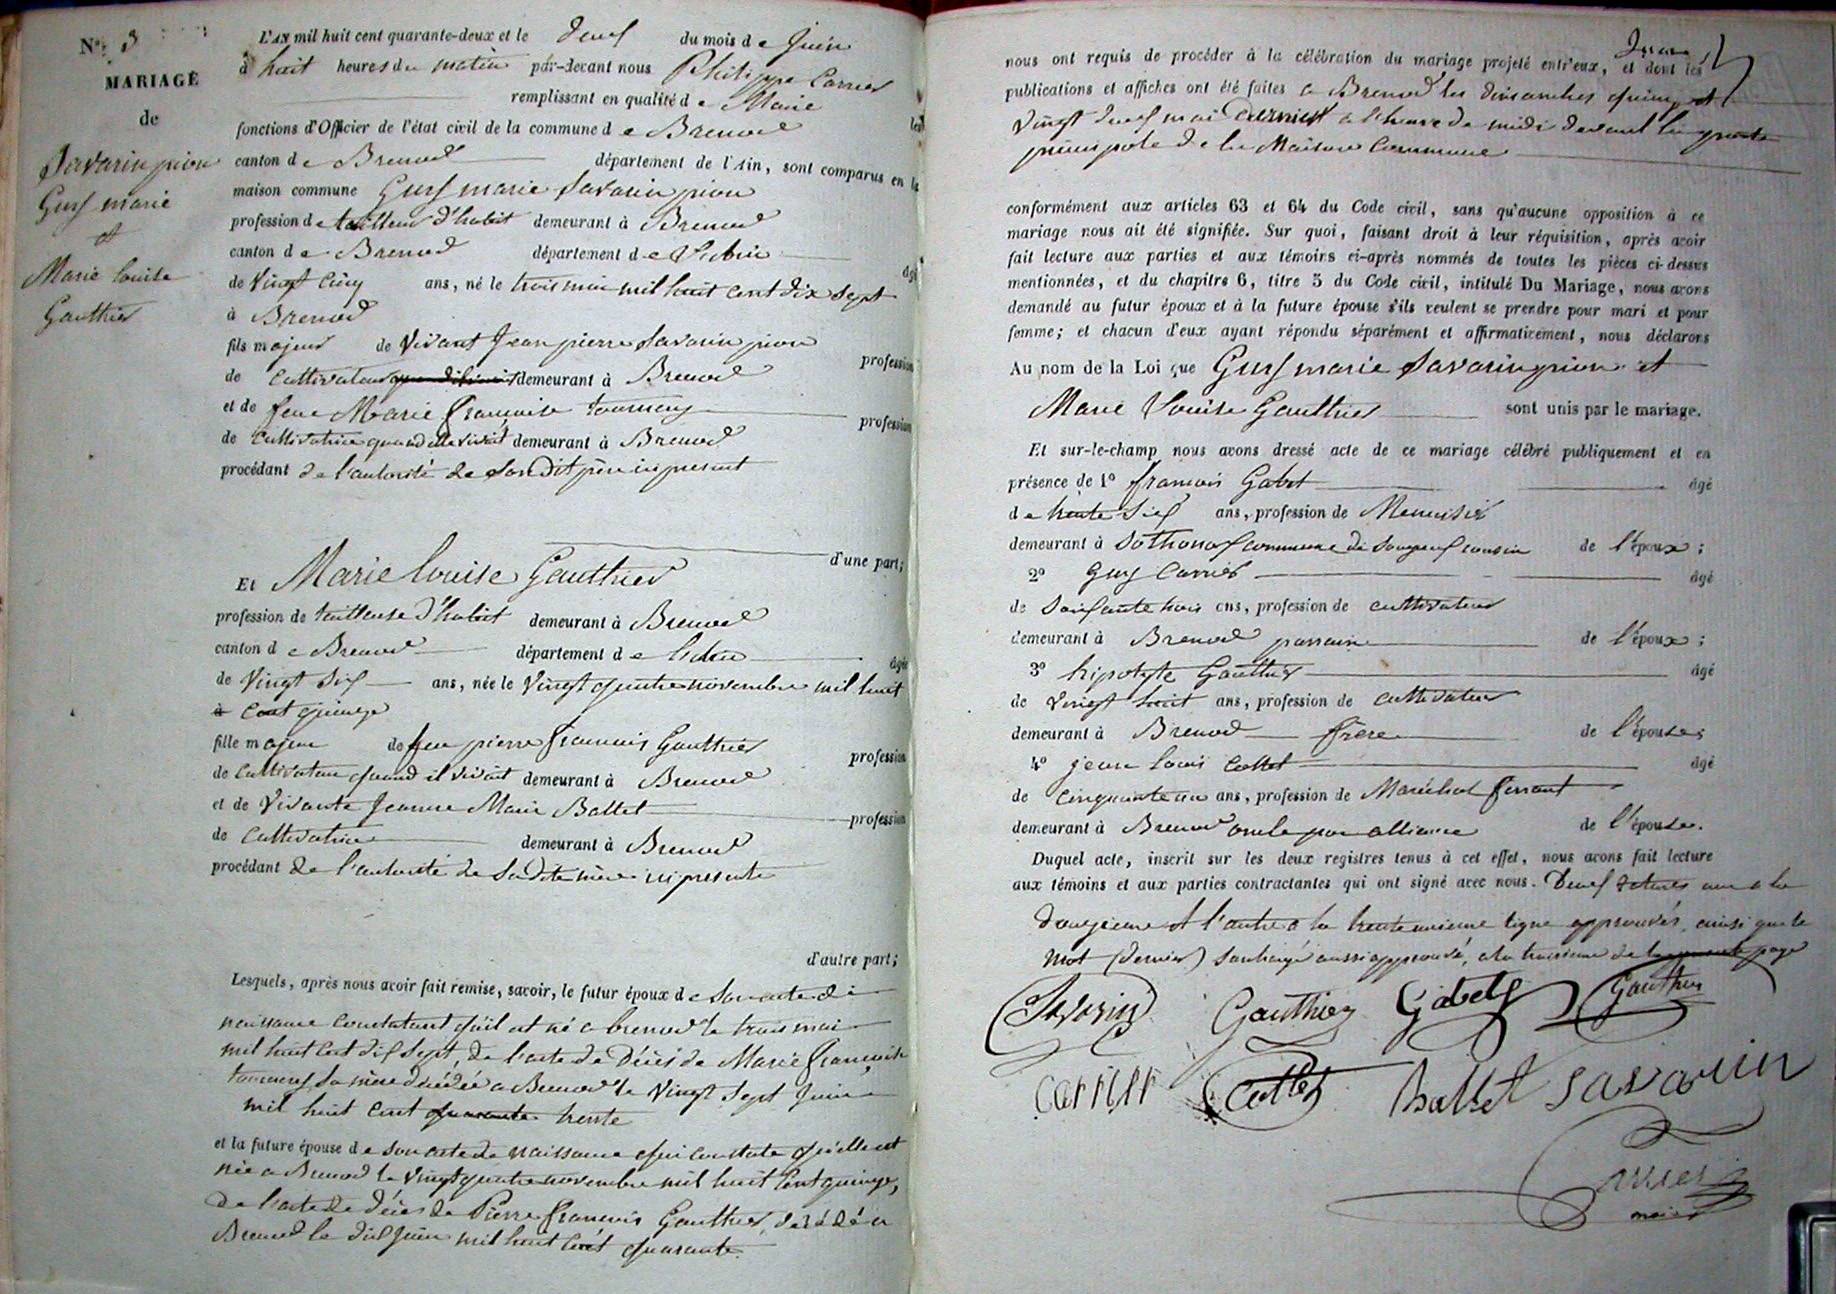 N° 3
MARIAGE
de
Savarin pion
Guy marie
et
Marie louise
Gauthier
L'AN mil huit cent quarante-deux et le deux du mois de Juin
à huit heures du matin par-devant nous Philippe Carrier
remplissant en qualité de Maire les
fonctions d'Officier de l'état civil de la commune de Brenod
canton de Brenod département de l'Ain, sont comparus en la
maison commune Guy marie Savarin pion
profession de tailleur d'habit demeurant à Brenod
canton de Brenod département de l'ain âgé
de Vingt cinq ans, né le trois mai mil huit cent dix sept
à Brenod
fils majeur de Vivant Jean pierre Savarin pion profession
de cultivateur demeurant à Brenod
et de feue Marie françoise tournery profession
de cultivatrice quand elle vivait demeurant à Brenod
procédant de l'autorité de son dit père ici present
d'une part;
Et Marie louise Gauthier
profession de tailleuse d'habit demeurant à Brenod
canton de Brenod département de l'ain âgée
de Vingt six ans, née le Vingt quatre novembre mil huit
à cent quinze
fille majeure de feu pierre françois Gauthier profession
de cultivateur quand il vivait demeurant à Brenod
et de Vivante Jeanne Marie Ballet profession
de cultivatrice demeurant à Brenod
procédant de l'autorité de sa dite mère ici presente
d'autre part;
Lesquels, après nous avoir fait remise, savoir, le futur époux de son acte de
naissance constatant qu'il est né a brenod le trois mai
mil huit cent dix sept, de l'acte de Décès de Marie françoise
sa mère décédée a Brenod le Vingt sept Juin
mil huit cent quarante trente
et la future épouse de son acte de naissance qui constate qu'elle est
née a Brenod le Vingt quatre novembre mil huit cent quinze,
de l'acte de décès de Pierre françois Gauthier, décédé a
Brenod le dix Juin mil huit cent quarante.
nous ont requis de procéder à la célébration du mariage projeté entr'eux, et dont les
publications et affiches ont été faites a Brenod les dimanches quinze et
Vingt deux mai dernier a l'heure de midi devant la porte
principale de la Maison Commune
conformément aux articles 63 et 64 du Code civil, sans qu'aucune opposition à ce
mariage nous ait été signifiée. Sur quoi, faisant droit à leur réquisition, après avoir
fait lecture aux parties et aux témoins ci-après nommés de toutes les pièces ci-dessus
mentionnées, et du chapitre 6, titre 5 du Code civil, intitulé Du Mariage, nous avons
demandé au futur époux et à la future épouse s'ils veulent se prendre pour mari et pour
femme; et chacun d'eux ayant répondu séparément et affirmativement, nous déclarons
Au nom de la Loi que Guy marie Savarin pion et
Marie Louise Gauthier sont unis par le mariage.
Et sur-le-champ nous avons dressé acte de ce mariage célébré publiquement et en
présence de 1° françois Gabet âgé
de trente six ans, profession de Menuisier
demeurant à Sothonod commune de Songieu cousin de l'époux;
2° Guy Carrier âgé
de Soixante trois ans, profession de cultivateur
demeurant à Brenod parrain de l'époux;
3° hipolyte Gauthier âgé
de Vingt huit ans, profession de cultivateur
demeurant à Brenod frère de l'épouse;
4° jean louis Collet âgé
de cinquante un ans, profession de Maréchal ferrant
demeurant à Brenod oncle par alliance de l'épouse.
Duquel acte, inscrit sur les deux registres tenus à cet effet, nous avons fait lecture
aux témoins et aux parties contractantes qui ont signé avec nous. Deux ratures une a la
douzieme et l'autre a la trente unieme ligne approuvés, ainsi que le
mot (dernier) surchargé aussi approuvé, a la troisieme de la page
Savarin Gauthier Gabet Gauthier
carrier Collet Ballet Savarin
Carrier
maire